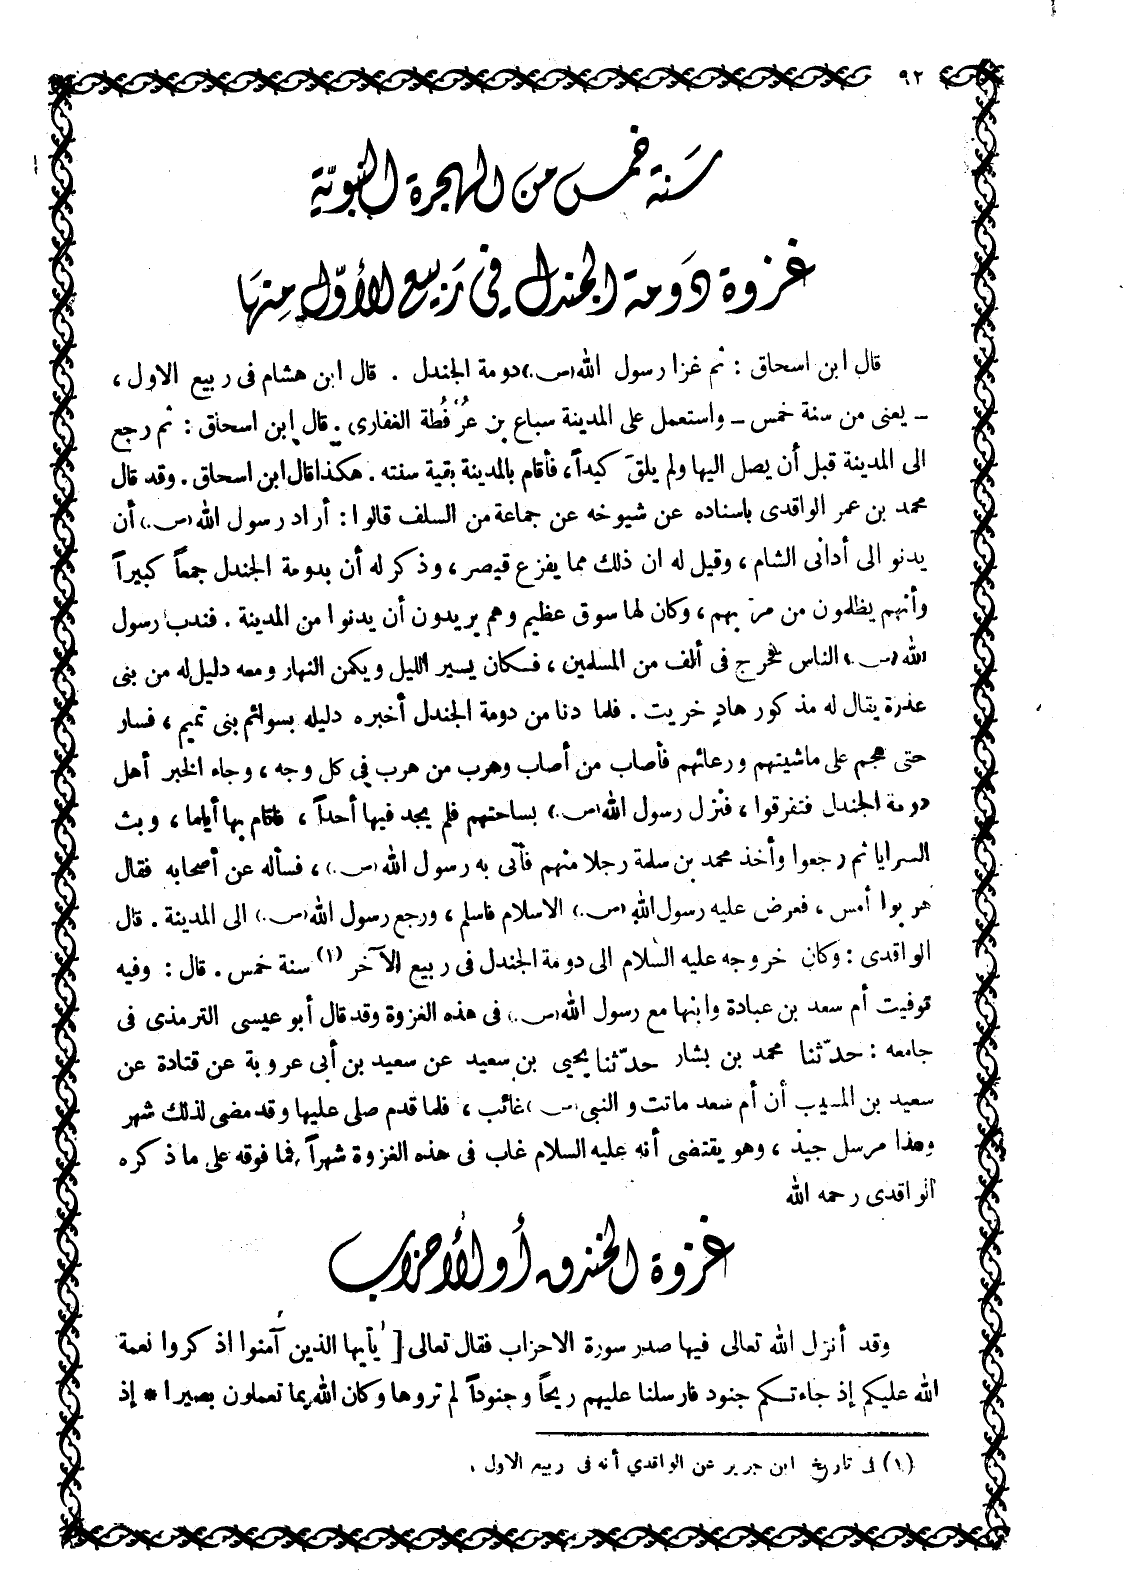 ٩٢
سَنة خمس من الهجرة النبويّة
غزوة دَومة الجندل في رَبيع الأوّل مِنهَا
قال ابن اسحاق : ثم غزا رسول الله (ص.) دومة الجندل . قال ابن هشام فى ربيع الاول ،
ـ يعنى من سنة خمس ـ واستعمل على المدينة سباع بن عُرْفُطة الغفارى . قال ابن اسحاق : ثم رجع
الى المدينة قبل أن يصل اليها ولم يلقَ كيداً ، فأقام بالمدينة بقية سنته . هكذا قال ابن اسحاق . وقد قال
محمد بن عمر الواقدى باسناده عن شيوخه عن جماعة من السلف قالوا : أراد رسول الله (ص.) أن
يدنو الى أدانى الشام ، وقيل له ان ذلك مما يفزع قيصر ، وذكر له أن بدومة الجندل جمعاً كبيراً
وأنهم يظلمون من مرّ بهم ، وكان لها سوق عظيم وهم يريدون أن يدنوا من المدينة . فندب رسول
الله (ص.) الناس فخرج فى ألف من المسلمين ، فكان يسير الليل ويكمن النهار ومعه دليل له من بنى
عذرة يقال له مذكور هادٍ خريت . فلما دنا من دومة الجندل أخبره دليله بسوائم بنى تميم ، فسار
حتى هجم على ماشيتهم ورعائهم فأصاب من أصاب وهرب من هرب فى كل وجه ، وجاء الخبر أهل
دومة الجندل فتفرقوا ، فنزل رسول الله (ص.) بساحتهم فلم يجد فيها أحداً ، فأقام بها أياما ، وبث
السرايا ثم رجعوا وأخذ محمد بن سلمة رجلا منهم فأتى به رسول الله (ص.) ، فسأله عن أصحابه فقال
هربوا أمس ، فعرض عليه رسول الله (ص.) الاسلام فاسلم ، ورجع رسول الله (ص.) الى المدينة . قال
الواقدى : وكان خروجه عليه السلام الى دومة الجندل فى ربيع الآخر (١) سنة خمس . قال : وفيه
توفيت أم سعد بن عبادة وابنها مع رسول الله (ص.) فى هذه الغزوة وقد قال أبو عيسى الترمذى فى
جامعه : حدّثنا محمد بن بشار حدّثنا يحيى بن سعيد عن سعيد بن أبى عروبة عن قتادة عن
سعيد بن المسيب أن أم سعد ماتت والنبى (ص) غائب ، فلما قدم صلى عليها وقد مضى لذلك شهر
وهذا مرسل جيد ، وهو يقتضى أنه عليه السلام غاب فى هذه الغزوة شهراً فما فوقه على ما ذكره
الواقدى رحمه الله
غزوة الخندق أو الأحزاب
وقد أنزل الله تعالى فيها صدر سورة الاحزاب فقال تعالى [ يأيها الذين آمنوا اذكروا نعمة
الله عليكم إذ جاءتكم جنود فارسلنا عليهم ريحاً وجنوداً لم تروها وكان الله بما تعملون بصيرا * إذ
(١) فى تاريخ ابن جرير عن الواقدي أنه فى ربيع الاول .